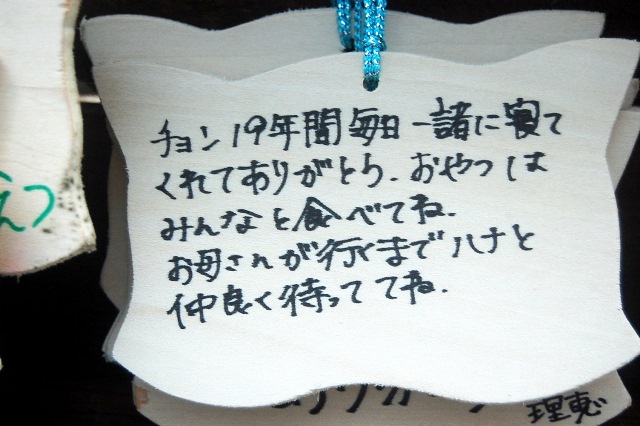 チョン19年間毎日一諸に寝て
くれてありがとう.おやつは
みんなと食べてね.
お母さんが行くまでハナと
仲良く待っててね.
理恵